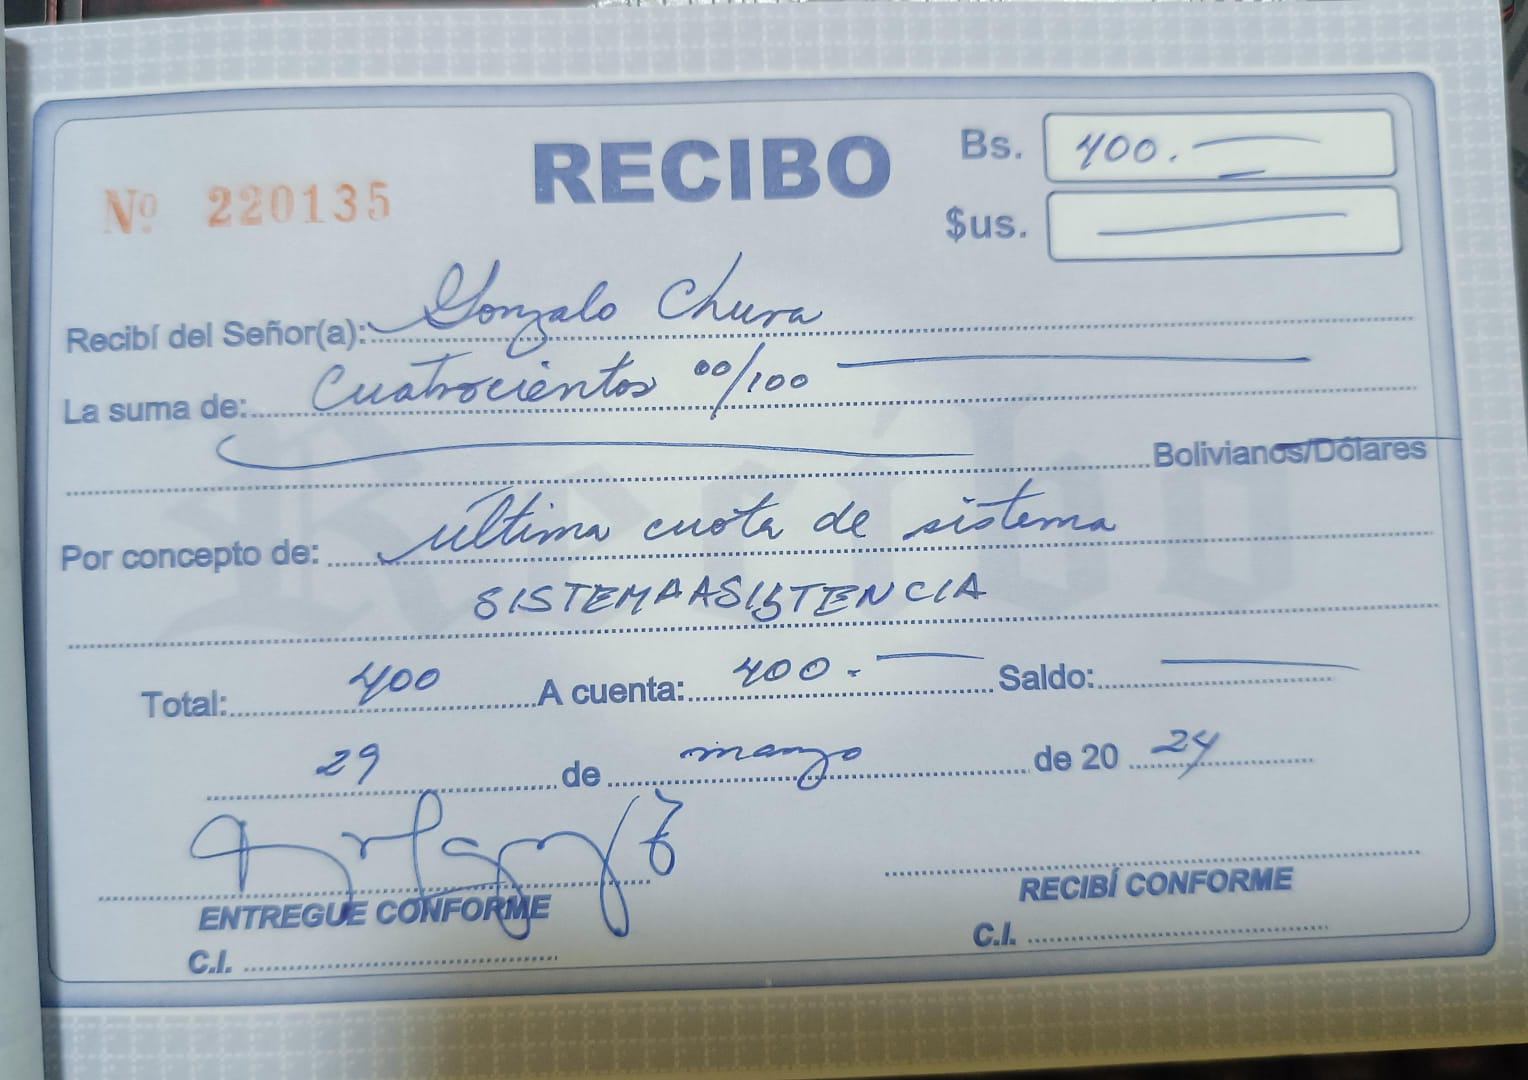 RECIBO
Bs. 400.
Nº 220135
$us.
Recibí del Señor(a): Gonzalo Chura
La suma de: Cuatrocientos 00/100
Bolivianos/Dólares
Por concepto de: última cuota de sistema
SISTEMA ASISTENCIA
Total: 400 A cuenta: 400.- Saldo:
29 de marzo de 20 24
ENTREGUE CONFORME
RECIBÍ CONFORME
C.I.
C.I.